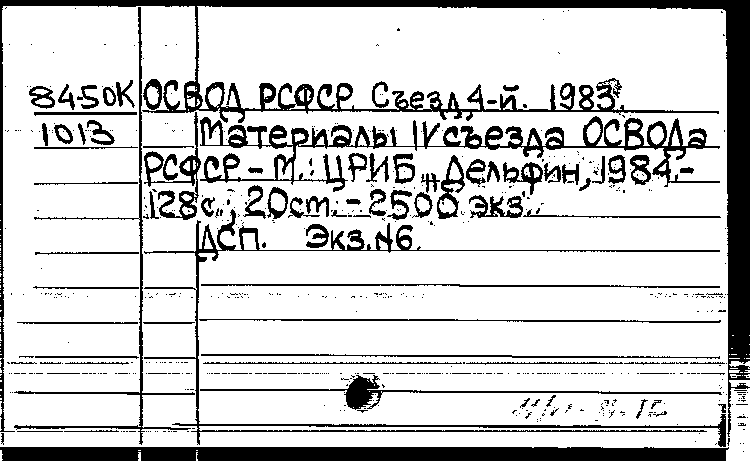 84-50К ОСВОД РСФСР. Съезд, 4-й. 1983.
1013 Материалы IV съезда ОСВОДа
РСФСР. - М.: ЦРИБ „Дельфин, 1984.-
128с.; 20см. - 2500 экз.
ДСП. Экз.N6.